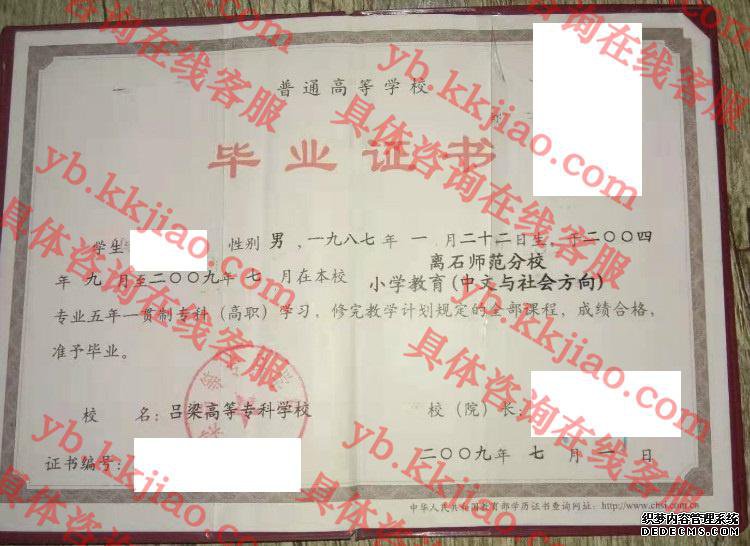 普通高等学校
毕业证书
学生 性别 男 ，一九八七年 一 月二十二日生，于二〇〇四
年 九 月至二〇〇九年 七 月在本校 离石师范分校
小学教育(中文与社会方向)
专业五年一贯制专科（高职）学习，修完教学计划规定的全部课程，成绩合格，
准予毕业。
校 名：吕梁高等专科学校 校（院）长：
证书编号： 二〇〇九年 七 月 一 日
中华人民共和国教育部学历证书查询网址：http://www.chsi.com.cn
yb.kkjiao.com
具体咨询在线客服
织梦内容管理系统
DEDECMS.COM